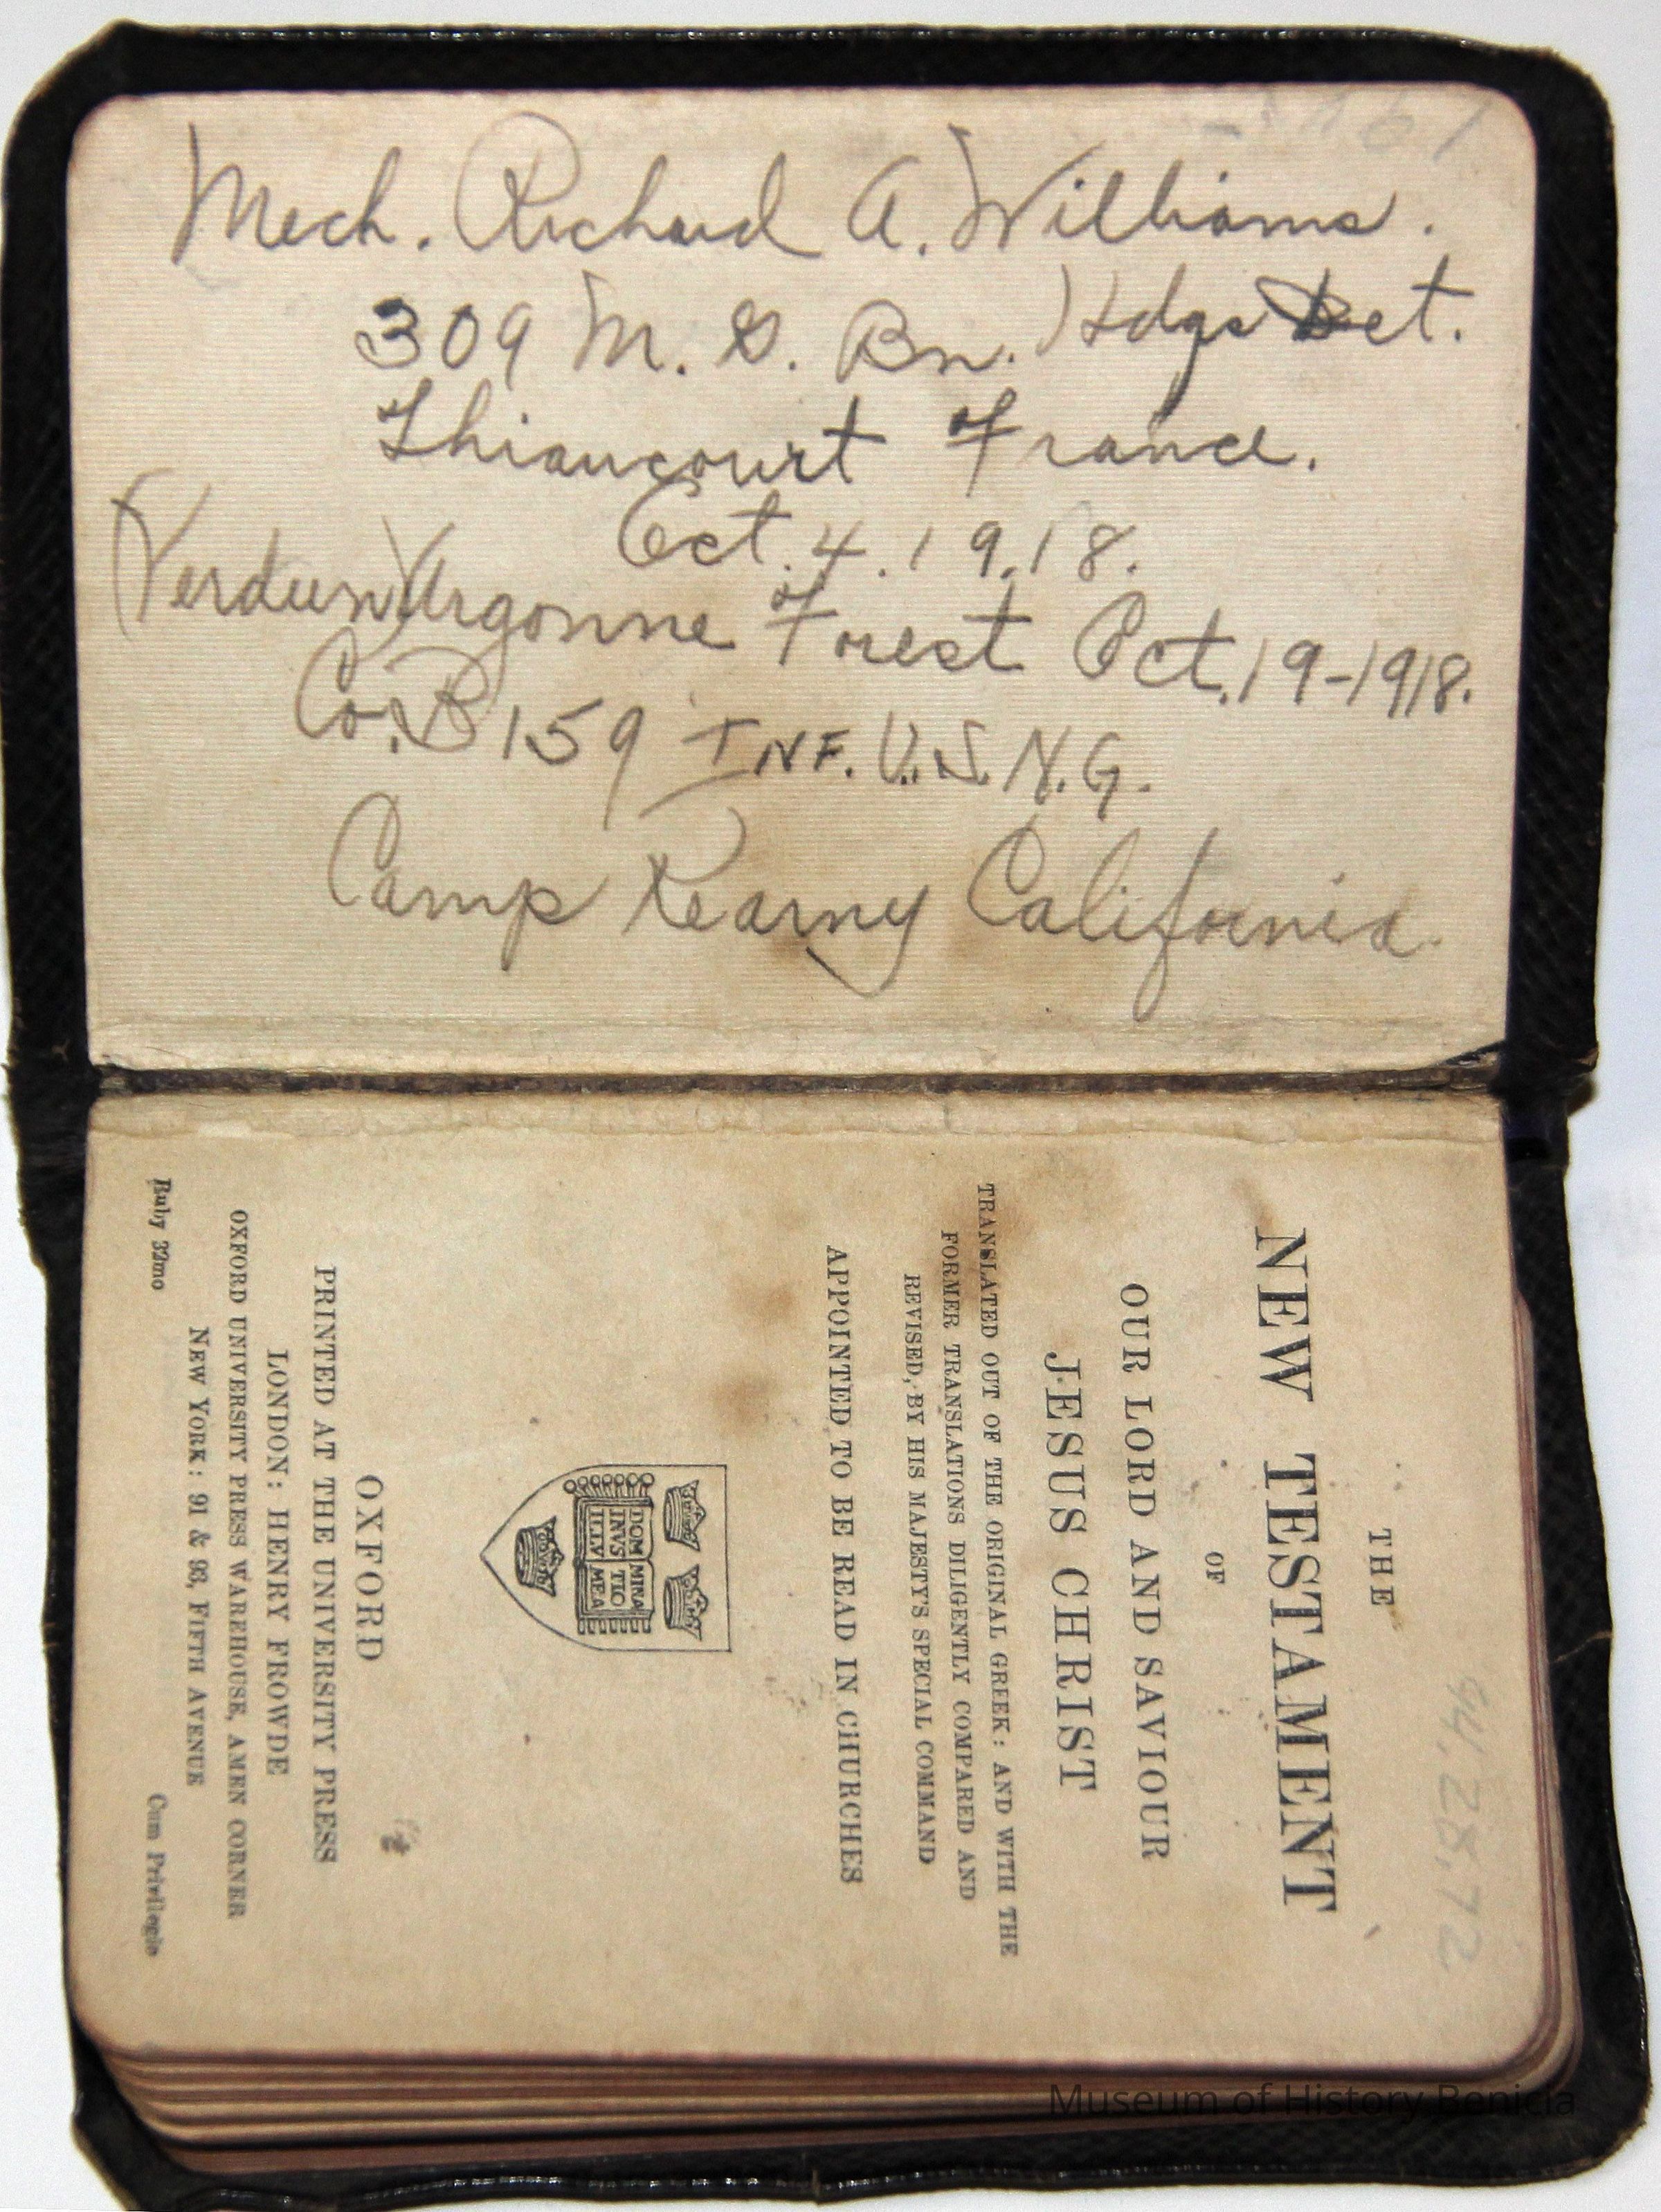 Mech. Richard A. Williams.
309 M. G. Bn. Hdqs Det.
Thiaucourt France.
Oct. 4. 1918.
(Verdun) Argonne Forest Oct. 19-1918.
Co. B 159 INF. U.S.N.G.
Camp Kearny California.
THE
NEW TESTAMENT
OF
OUR LORD AND SAVIOUR
JESUS CHRIST
TRANSLATED OUT OF THE ORIGINAL GREEK: AND WITH THE
FORMER TRANSLATIONS DILIGENTLY COMPARED AND
REVISED, BY HIS MAJESTY'S SPECIAL COMMAND
APPOINTED TO BE READ IN CHURCHES
DOM MINA
INVS TIO
ILLV MEA
OXFORD
PRINTED AT THE UNIVERSITY PRESS
LONDON: HENRY FROWDE
OXFORD UNIVERSITY PRESS WAREHOUSE, AMEN CORNER
NEW YORK: 91 & 93, FIFTH AVENUE
Ruby 32mo
Cum Privilegio
94.28.72
Museum of History Benicia